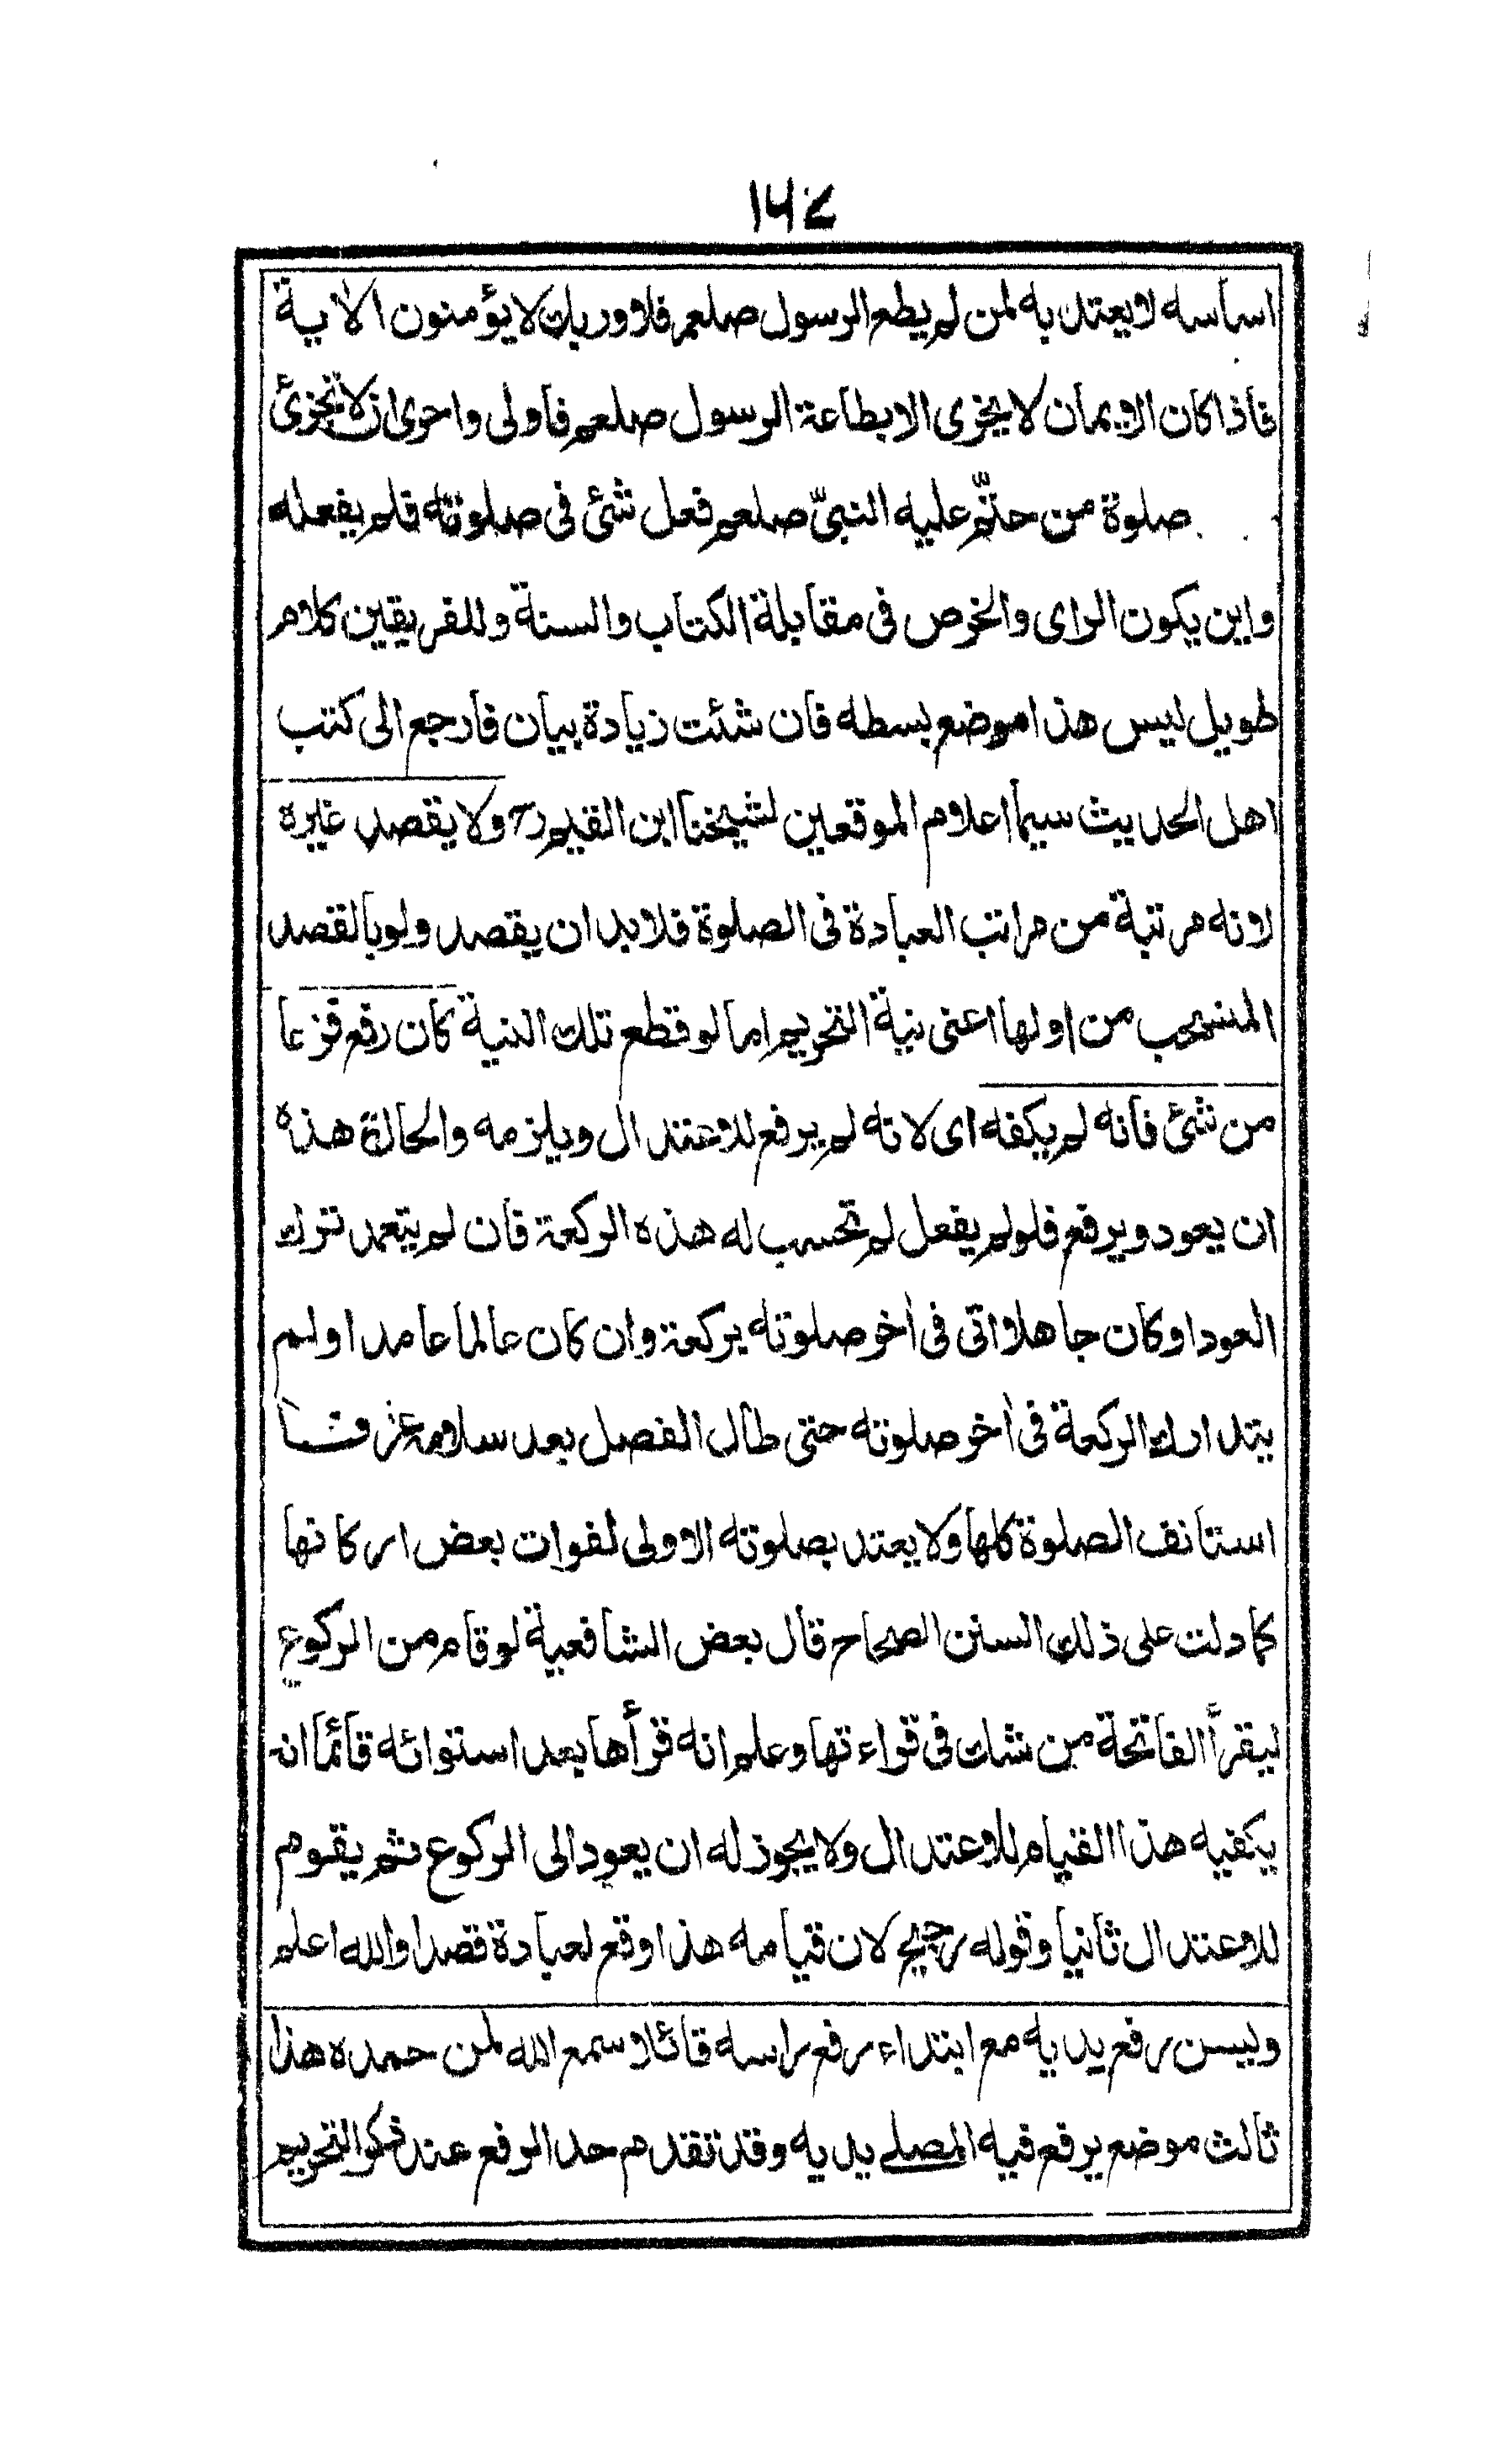 ١٦٧
اساسه لا يعتد به لمن لم يطع الرسول صلعم فلا وربك لا يؤمنون الآية
فاذا كان الايمان لا يجزى الا بطاعة الرسول صلعم فاولى واحرى ان لا تجزئ
صلوة من حتّم عليه النبىّ صلعم فعل شئ فى صلوته فلم يفعله
واين يكون الراى والخرص فى مقابلة الكتاب والسنة وللفريقين كلام
طويل ليس هذا موضع بسطه فان شئت زيادة بيان فارجع الى كتب
اهل الحديث سيما اعلام الموقعين لشيخنا ابن القيم رح ولا يقصد غيره
لانه مرتبة من مراتب العبادة فى الصلوة فلا بد ان يقصد ولو بالقصد
المنسحب من اولها اعنى نية التحريم اما لو قطع تلك النية كان رفع فزعا
من شئ فانه لم يكفه اى لانه لم يرفع للاعتدال ويلزمه والحالة هذه
ان يعود ويرفع فلو لم يفعل لم تحسب له هذه الركعة فان لم يتعمد ترك
العود او كان جاهلا اتى فى اخر صلوته بركعة وان كان عالما عامدا او لم
يتدارك الركعة فى اخر صلوته حتى طال الفصل بعد سلامه عرفا
استانف الصلوة كلها ولا يعتد بصلوته الاولى لفوات بعض اركانها
كما دلت على ذلك السنن الصحاح قال بعض الشافعية لو قام من الركوع
ليقرأ الفاتحة من شك فى قراءتها وعلم انه قرأها بعد استوائه قائما انه
يكفيه هذا القيام للاعتدال ولا يجوز له ان يعود الى الركوع ثم يقوم
للاعتدال ثانيا وقوله رجيح لان قيامه هذا وقع لعبادة قصدا والله اعلم
ويسن رفع يديه مع ابتداء رفع راسه قائلا سمع الله لمن حمده هذا
ثالث موضع يرفع فيه المصلے يديه وقد تقدم حد الرفع عند ذكر التحريم